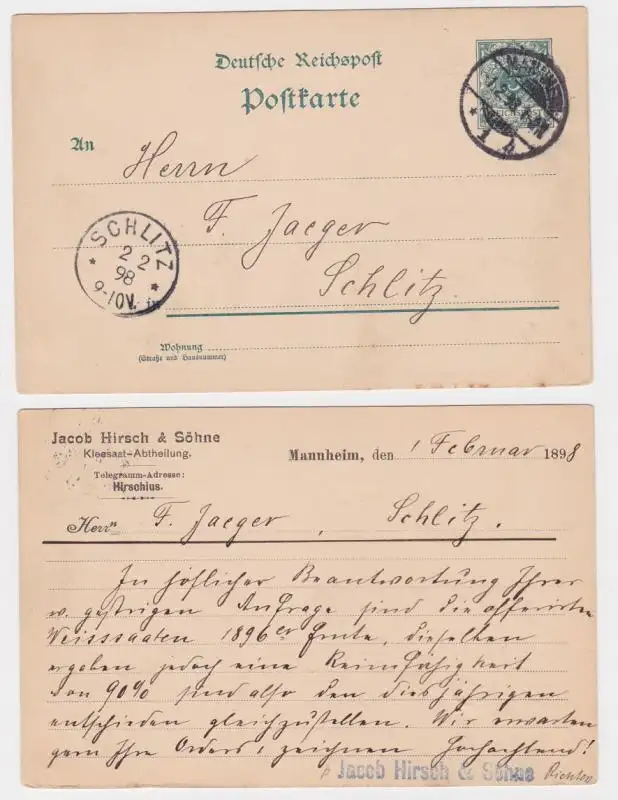 Deutsche Reichspost
Postkarte
An
Herrn
F. Jaeger
Schlitz.
SCHLITZ
2 2
98
9-10V.
in
Wohnung
(Straße und Hausnummer)
Jacob Hirsch & Söhne
Kleesaat-Abtheilung.
Telegramm-Adresse:
Hirschius.
Mannheim, den 1 Februar 1898
Herrn F. Jaeger, Schlitz.
In höflicher Beantwortung Ihrer
w. gestrigen Anfrage sind die offerirten
Weisssaaten 1896er Ernte, dieselben
ergaben jedoch eine Keimfähigkeit
von 90% sind also den diesjährigen
entschieden gleichzustellen. Wir erwarten
gern Ihre Orders, zeichnen Hochachtend!
p Jacob Hirsch & Söhne